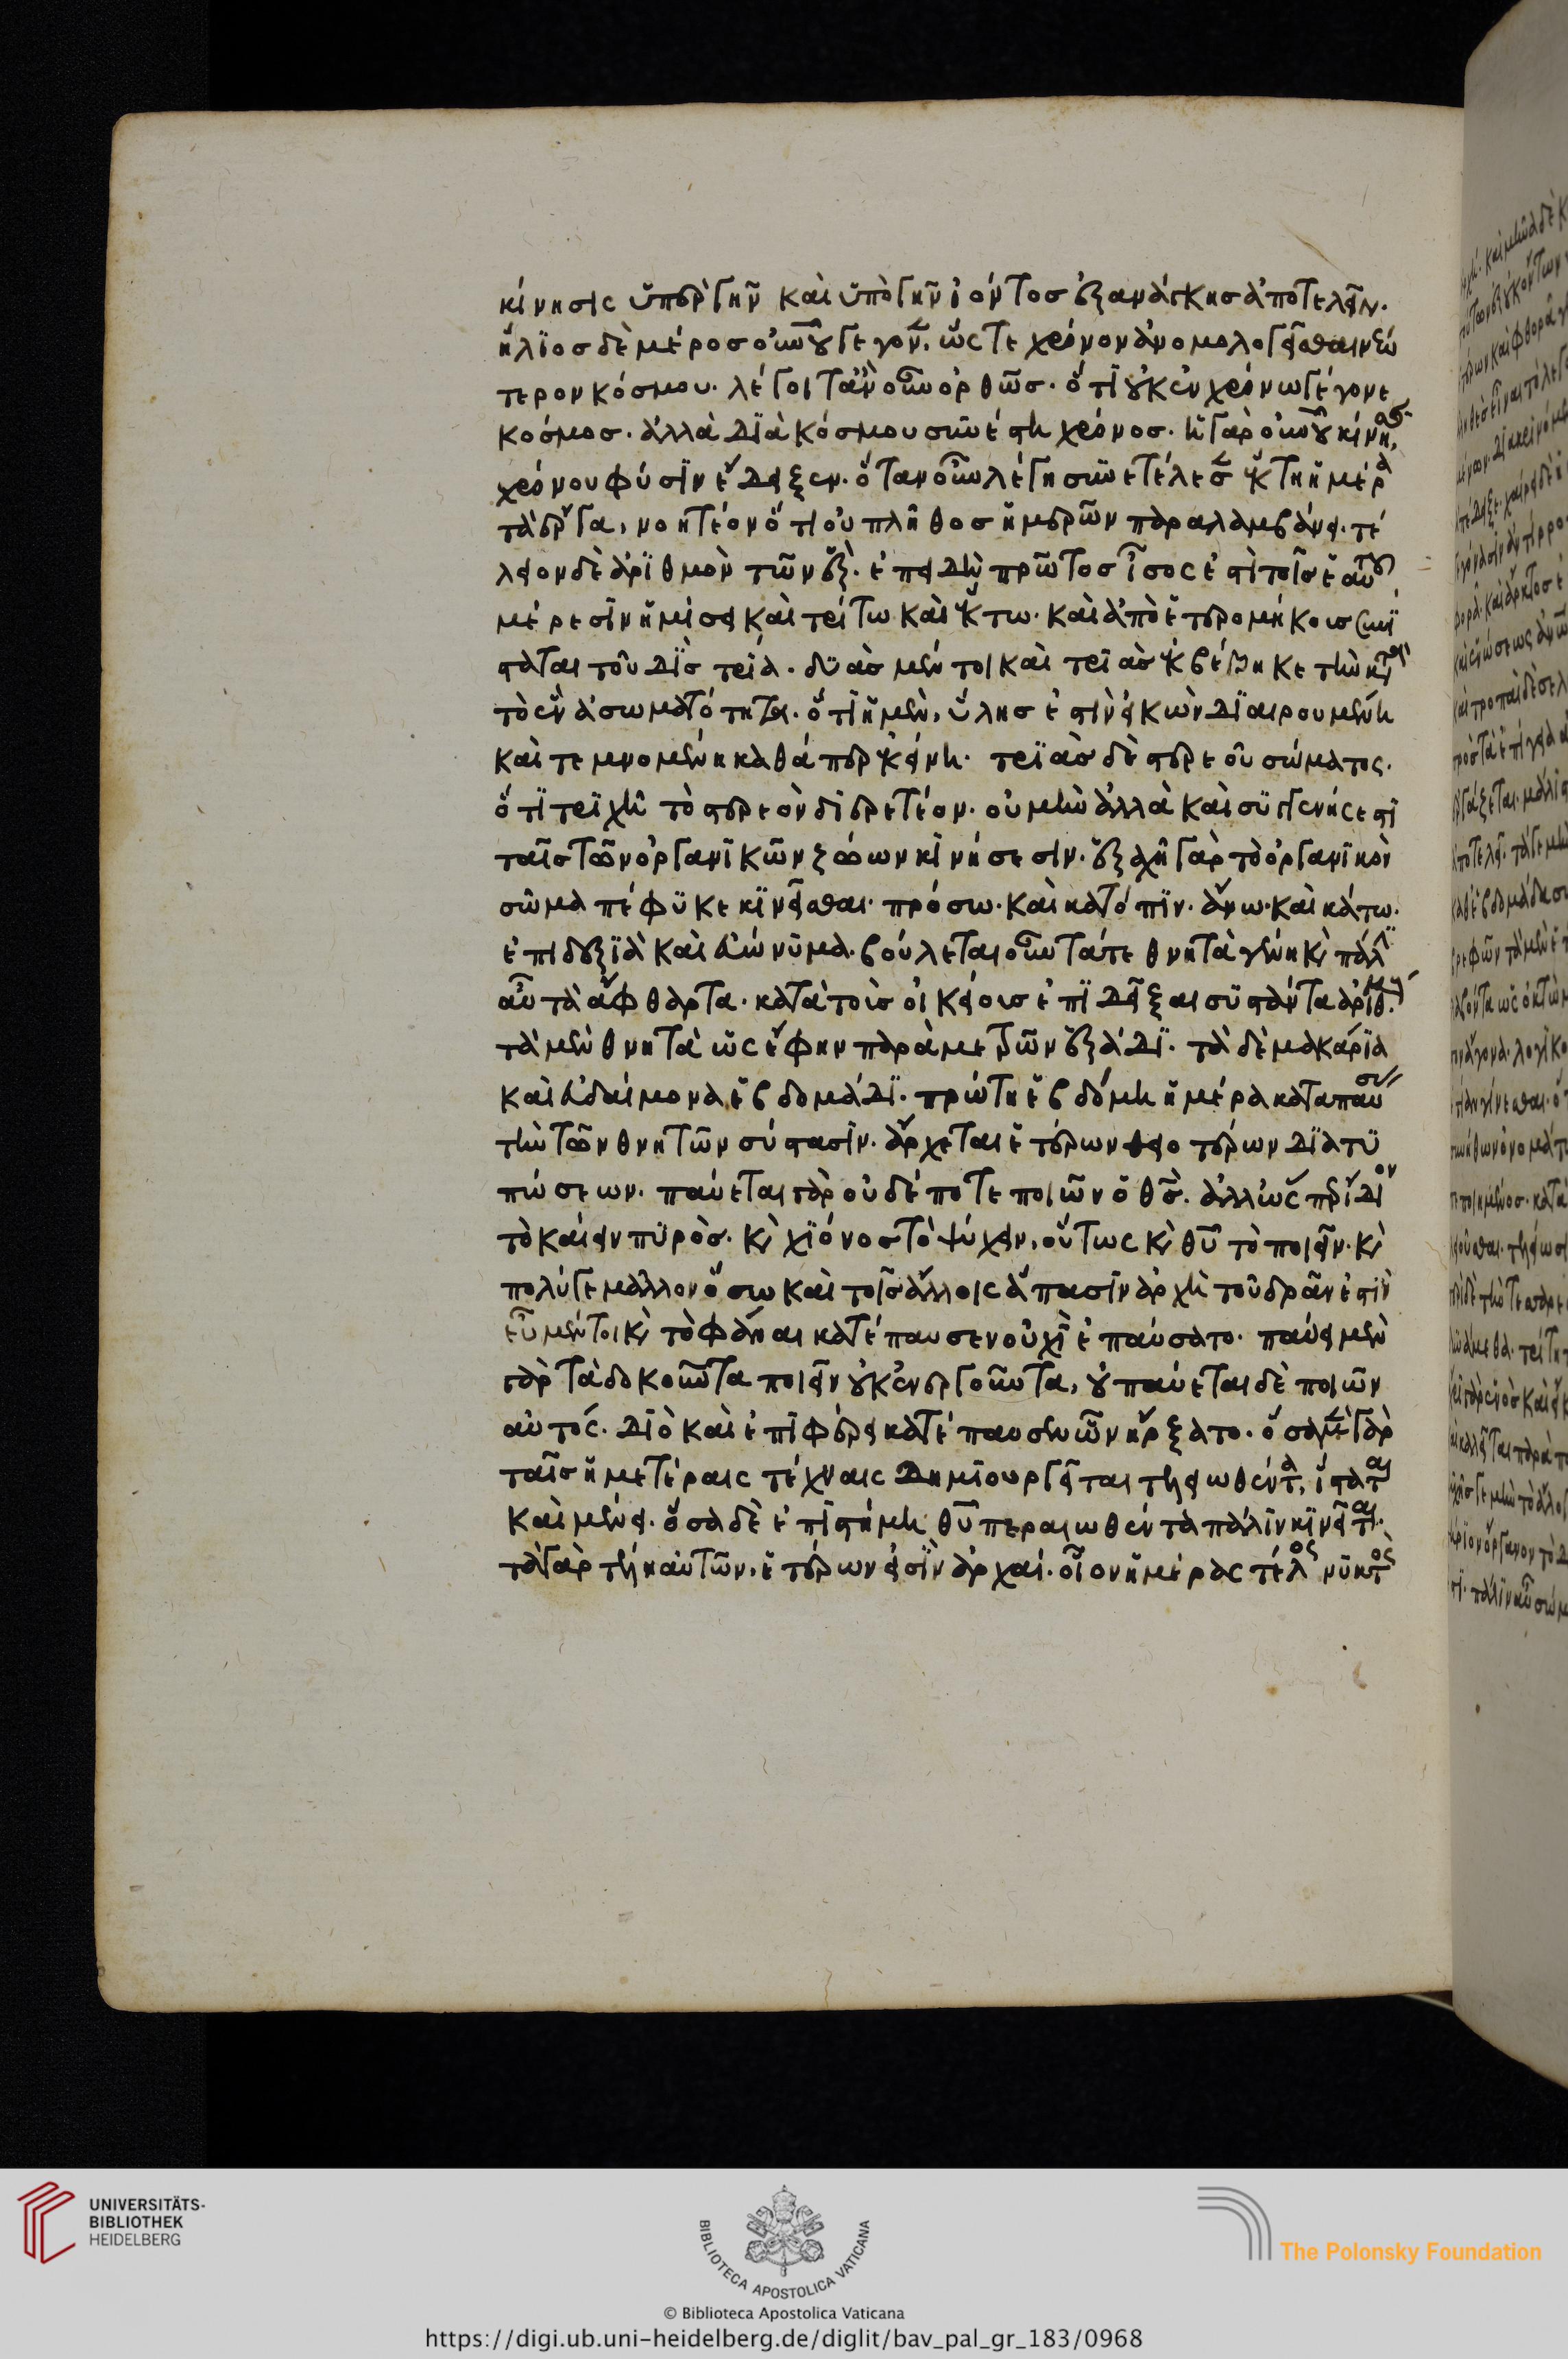 κίνησις ὑπὲρ γῆν καὶ ὑπὸ γῆν ἰόντος ἐξανάγκης ἀποτελεῖν.
ἥλιος δὲ μέρος οὐνοῦ γέγον, ὥστε χρόνον ἀνομολογεῖσθαι νεώ
τερον κόσμου. λέγοιτ ἂν οὖν ὀρθῶς. ὅτι οὐκ ἐν χρόνω γέγονε
κόσμος. ἀλλὰ διὰ κόσμου συνέστη χρόνος. ἡ γὰρ οὐνοῦ κίνης,
χρόνου φύσιν ἔδειξεν. ὅταν οὖν λέγη συνετέλεσ ἕκτη ἡμέρα
τὰ ἔργα, νοητέον ὅτι οὐ πλῆθος ἡμερῶν παραλαμβάνει. τέ
λειον δὲ ἀριθμὸν τῶν ἕξ. ἐπειδὴ πρῶτος ἴσος ἐστὶ τοῖς ἑαυτοῦ
μέρεσιν ἡμίσει καὶ τρίτω καὶ ἕκτω. καὶ ἀπὸ ἑτερομήκους συνί
σταται τοῦ δὶς τρία. δυὰς μέντοι καὶ τριὰς ἐκβέβηκε τὴν κατὰ
τὸ ἓν ἀσωματότητα. ὅτι ἡ μὲν, ὕλης ἐστὶν εἰκὼν διαιρουμένη
καὶ τεμνομένη καθάπερ ἐκείνη. τριὰς δὲ στερεοῦ σώματος.
ὅτι τριχῆ τὸ στερεὸν διαιρετέον. οὐ μὴν ἀλλὰ καὶ συγγενής ἐστι
ταῖς τῶν ὀργανικῶν ζώων κινήσεσιν. ἑξαχῆ γὰρ τὸ ὀργανικὸν
σῶμα πέφυκε κινεῖσθαι. πρόσω. καὶ κατόπιν. ἄνω. καὶ κάτω.
ἐπι δεξιὰ καὶ εὐώνυμα. βούλεται οὖν τάτε θνητὰ γένη κὶ πάλι
αὖ τὰ ἄφθαρτα. κατὰ τοὺς οἰκείους ἐπιδεῖξαι συστάντα ἀριθμούς.
τὰ μὲν θνητὰ ὡς ἔφην παραμετρῶν ἑξάδι. τὰ δὲ μακάρια
καὶ εὐδαίμονα ἑβδομάδι. πρώτη ἑβδόμη ἡμέρα καταπαύσ
τὴν τῶν θνητῶν σύστασιν. ἄρχεται ἑτέρων θειοτέρων διατυ
πώσεων. παύεται γὰρ οὐδέποτε ποιῶν ὁ θς. ἀλλ ὥσπερ ἴδιον
τὸ καίειν πυρὸς. κὶ χιόνος τὸ ψύχειν, οὕτως κὶ θυ τὸ ποιεῖν. κὶ
πολύ γε μᾶλλον ὅσω καὶ τοῖς ἄλλοις ἅπασιν ἀρχὴ τοῦ δρᾶν ἐστὶν
εὖ μέντοι κὶ τὸ φάναι κατέπαυσεν οὐχὶ ἐπαύσατο. παύει μὲν
γὰρ τὰ δοκοῦντα ποιεῖν οὐκ ἐνεργοῦντα, οὐ παύεται δὲ ποιῶν
αὐτός. διὸ καὶ ἐπιφέρει κατέπαυσεν ὧν ἤρξατο. ὅσα μὲν γὰρ
ταῖς ἡμετέραις τέχναις δημιουργεῖται τελειωθέντα, ἵσταται
καὶ μένει. ὅσα δὲ ἐπιστήμη θυ περαιωθέντα πάλιν κινεῖται.
τὰ γὰρ τέλη αὐτῶν, ἑτέρων εἰσὶν ἀρχαί. οἷον ἡμέρας τέλος νυκτὸς
UNIVERSITÄTS-
BIBLIOTHEK
HEIDELBERG
BIBLIOTECA APOSTOLICA VATICANA
The Polonsky Foundation
© Biblioteca Apostolica Vaticana
https://digi.ub.uni-heidelberg.de/diglit/bav_pal_gr_183/0968